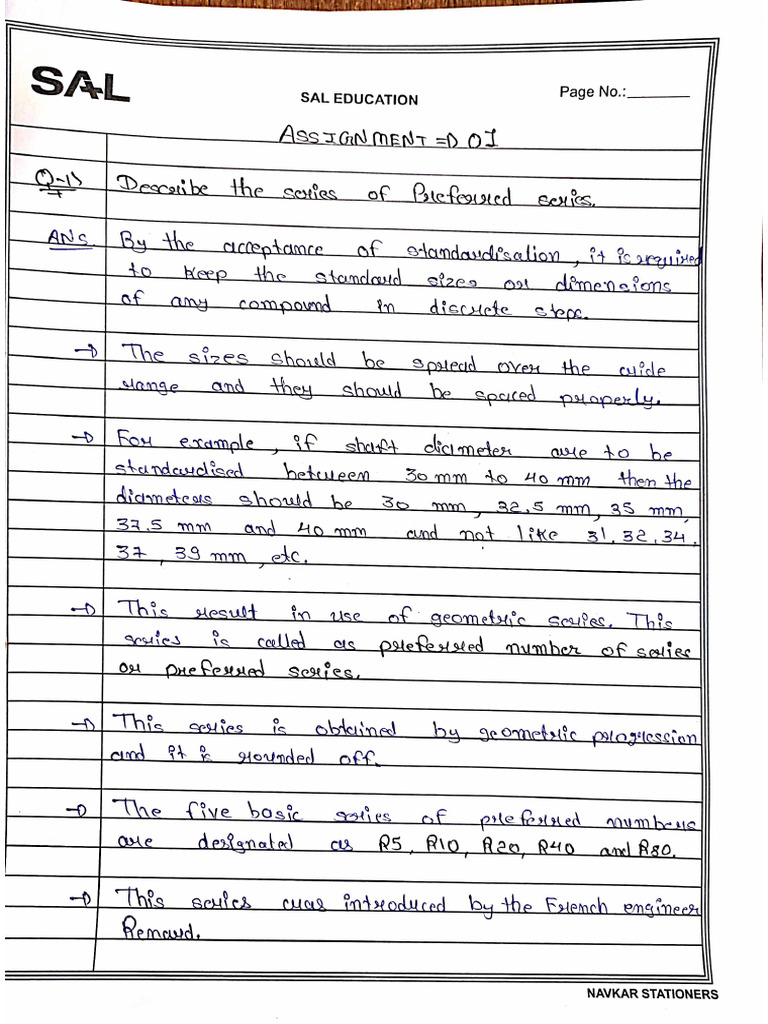 SAL
SAL EDUCATION
Page No.:________
ASSIGNMENT ⇒ 01
Q-1) Describe the series of Preferred series.
ANS. By the acceptance of standardisation, it is required
to keep the standard sizes or dimensions
of any compound in discrete steps.
→ The sizes should be spread over the wide
range and they should be spaced properly.
→ For example, if shaft diameter are to be
standardised between 30 mm to 40 mm then the
diameters should be 30 mm, 32.5 mm, 35 mm,
37.5 mm and 40 mm and not like 31, 32, 34,
37, 39 mm, etc.
→ This result in use of geometric series. This
series is called as preferred number of series
or preferred series.
→ This series is obtained by geometric progression
and it is rounded off.
→ The five basic series of preferred numbers
are designated as R5, R10, R20, R40 and R80.
→ This series was introduced by the French engineer
Renard.
NAVKAR STATIONERS